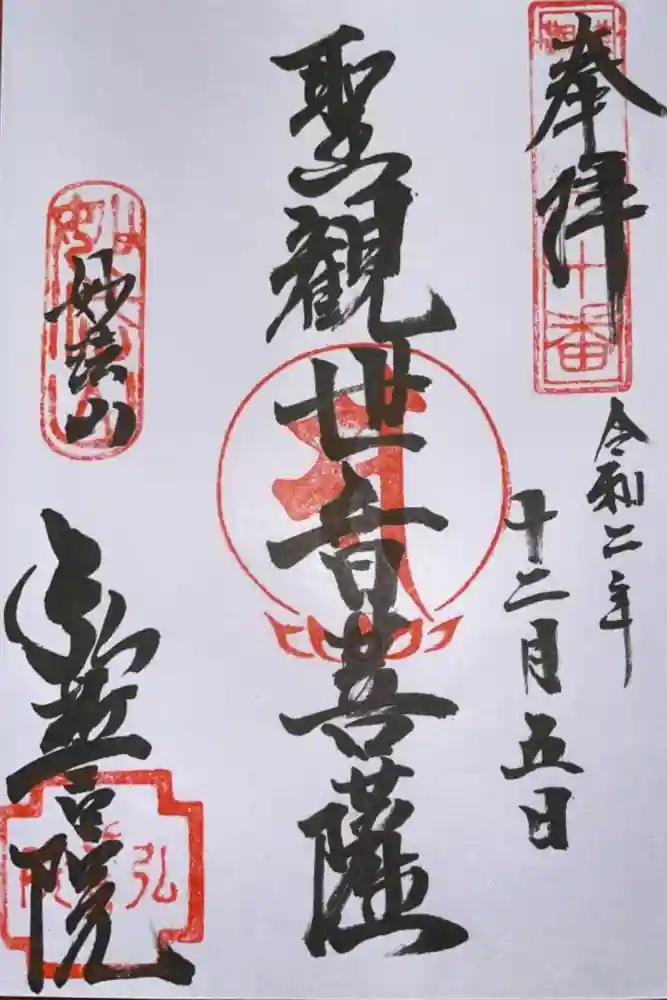 奉拝
令和二年
十二月五日
聖観世音菩薩
妙 山
弘善院
十番
弘